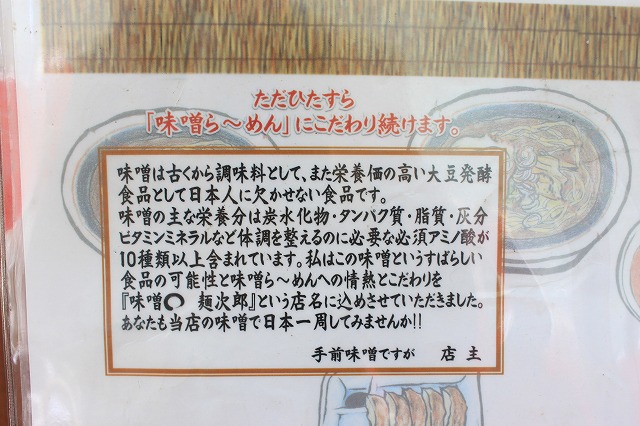 ただひたすら
「味噌ら〜めん」にこだわり続けます。
味噌は古くから調味料として、また栄養価の高い大豆発酵
食品として日本人に欠かせない食品です。
味噌の主な栄養分は炭水化物・タンパク質・脂質・灰分
ビタミンミネラルなど体調を整えるのに必要な必須アミノ酸が
10種類以上含まれています。私はこの味噌というすばらしい
食品の可能性と味噌ら〜めんへの情熱とこだわりを
『味噌〇 麺次郎』という店名に込めさせていただきました。
あなたも当店の味噌で日本一周してみませんか!!
手前味噌ですが 店主